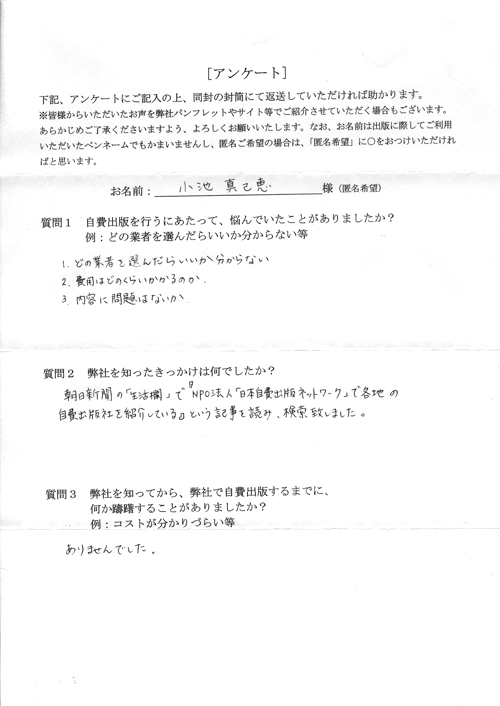 ［アンケート］
下記、アンケートにご記入の上、同封の封筒にて返送していただければ助かります。
※皆様からいただいたお声を弊社パンフレットやサイト等でご紹介させていただく場合もございます。
あらかじめご了承くださいますよう、よろしくお願いいたします。なお、お名前は出版に際してご利用
いただいたペンネームでもかまいませんし、匿名ご希望の場合は、「匿名希望」に○をおつけいただけれ
ばと思います。
お名前： 小池 真己恵 様（匿名希望）
質問１ 自費出版を行うにあたって、悩んでいたことがありましたか？
例：どの業者を選んだらいいか分からない等
1. どの業者を選んだらいいか分からない
2. 費用はどのくらいかかるのか.
3. 内容に問題はないか
質問２ 弊社を知ったきっかけは何でしたか？
朝日新聞の「生活欄」で『NPO法人「日本自費出版ネットワーク」で各地の
自費出版社を紹介している』という記事を読み、検索致しました。
質問３ 弊社を知ってから、弊社で自費出版するまでに、
何か躊躇することがありましたか？
例：コストが分かりづらい等
ありませんでした。